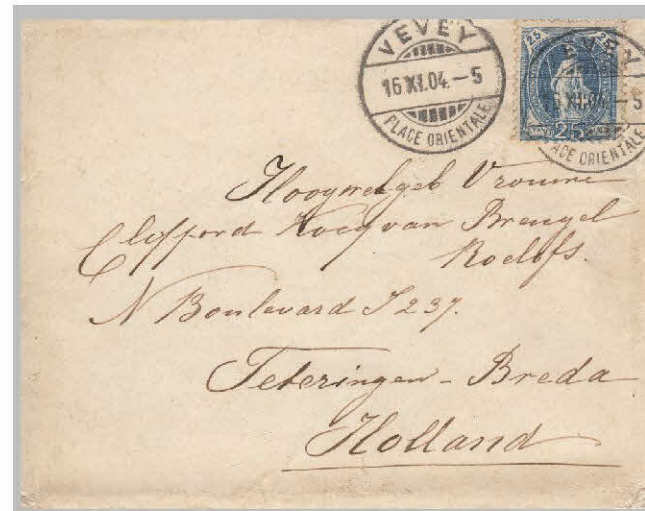 VEVEY
16 XI.04.-5
PLACE ORIENTALE
25 25
VEVEY
16 XI.04-5
25
PLACE ORIENTALE
Hoogwelgeb Vrouwe
Clifford Kocq van Breugel
Roelofs.
N Boulevard J 237.
Teteringen - Breda
Holland